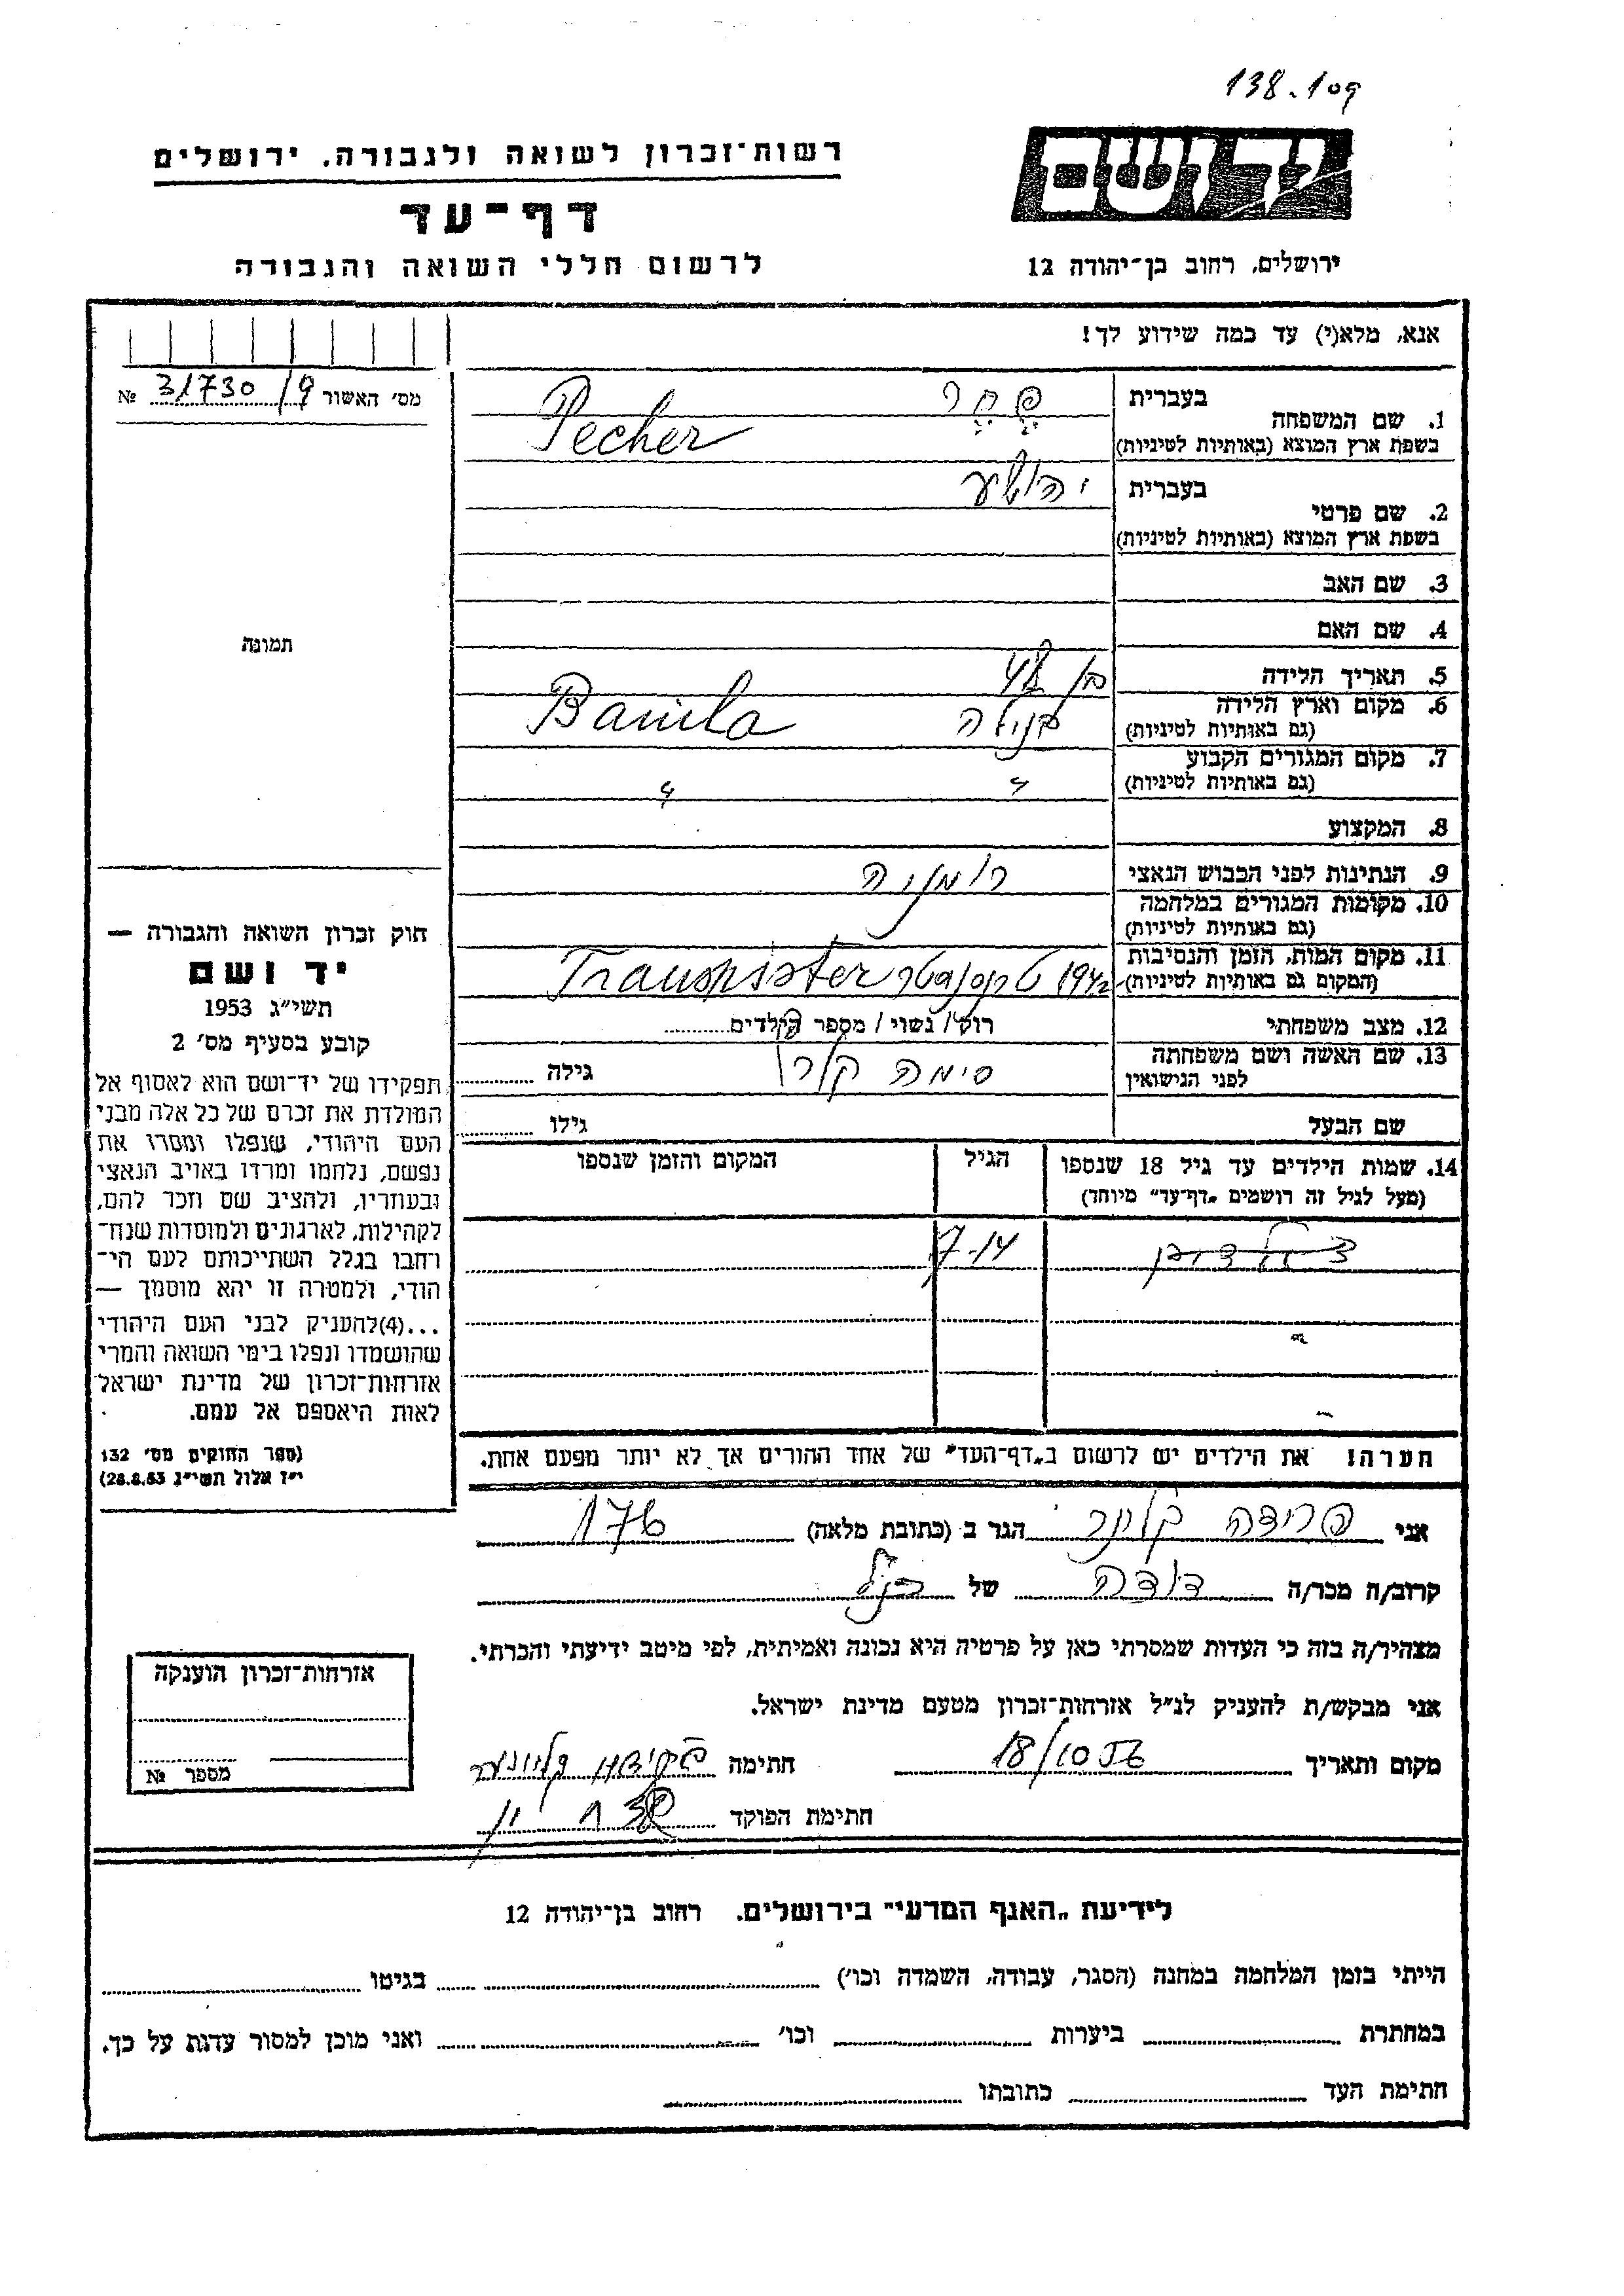 138.109
יד ושם
רשות־זכרון לשואה ולגבורה. ירושלים
דף־עד
לרשום חללי השואה והגבורה
ירושלים, רחוב בן־יהודה 12
אנא, מלא(י) עד כמה שידוע לך!
מס' האשור 31730/9 №
תמונה
1. שם המשפחה
בעברית פחר
בשפת ארץ המוצא (באותיות לטיניות) Pecher
2. שם פרטי
בעברית יהושע
בשפת ארץ המוצא (באותיות לטיניות)
3. שם האב
4. שם האם
5. תאריך הלידה בן
6. מקום וארץ הלידה
(גם באותיות לטיניות) בנילה Banila
7. מקום המגורים הקבוע
(גם באותיות לטיניות) " "
8. המקצוע
9. הנתינות לפני הכבוש הנאצי רומניה
10. מקומות המגורים במלחמה
(גם באותיות לטיניות)
11. מקום המות, הזמן והנסיבות
(המקום גם באותיות לטיניות) 1942 Transnister
12. מצב משפחתי רוק/ נשוי/ מספר הילדים
13. שם האשה ושם משפחתה
לפני הנישואין סימה גילה
שם הבעל גילו
14. שמות הילדים עד גיל 18 שנספו
(מעל לגיל זה רושמים „דף־עד" מיוחד)
הגיל
המקום והזמן שנספו
7-14
הערה! את הילדים יש לרשום ב„דף־העד" של אחד ההורים אך לא יותר מפעם אחת.
חוק זכרון השואה והגבורה —
יד ושם
תשי"ג 1953
קובע בסעיף מס' 2
תפקידו של יד־ושם הוא לאסוף אל
המולדת את זכרם של כל אלה מבני
העם היהודי, שנפלו ומסרו את
נפשם, נלחמו ומרדו באויב הנאצי
ובעוזריו, ולהציב שם וזכר להם,
לקהילות, לארגונים ולמוסדות שנח־
רחבו בגלל השתייכותם לעם הי־
הודי, ולמטרה זו יהא מוסמך —
...(4)להעניק לבני העם היהודי
שהושמדו ונפלו בימי השואה והמרי
אזרחות־זכרון של מדינת ישראל
לאות היאספם אל עמם.
(ספר החוקים מס' 132
י"ז אלול תשי"ג 28.8.53)
אני פרידה קליגר הגר ב (כתובת מלאה) 176
קרוב/ה מכר/ה דודה של הנ"ל
מצהיר/ה בזה כי העדות שמסרתי כאן על פרטיה היא נכונה ואמיתית, לפי מיטב ידיעתי והכרתי.
אני מבקש/ת להעניק לנ"ל אזרחות־זכרון מטעם מדינת ישראל.
מקום ותאריך 18/10 56 חתימה
חתימת הפוקד
אזרחות־זכרון הוענקה
מספר №
לידיעת „האגף המדעי" בירושלים. רחוב בן־יהודה 12
הייתי בזמן המלחמה במחנה (הסגר, עבודה, השמדה וכו') בגיטו
במחתרת ביערות וכו' ואני מוכן למסור עדות על כך.
חתימת העד כתובתו